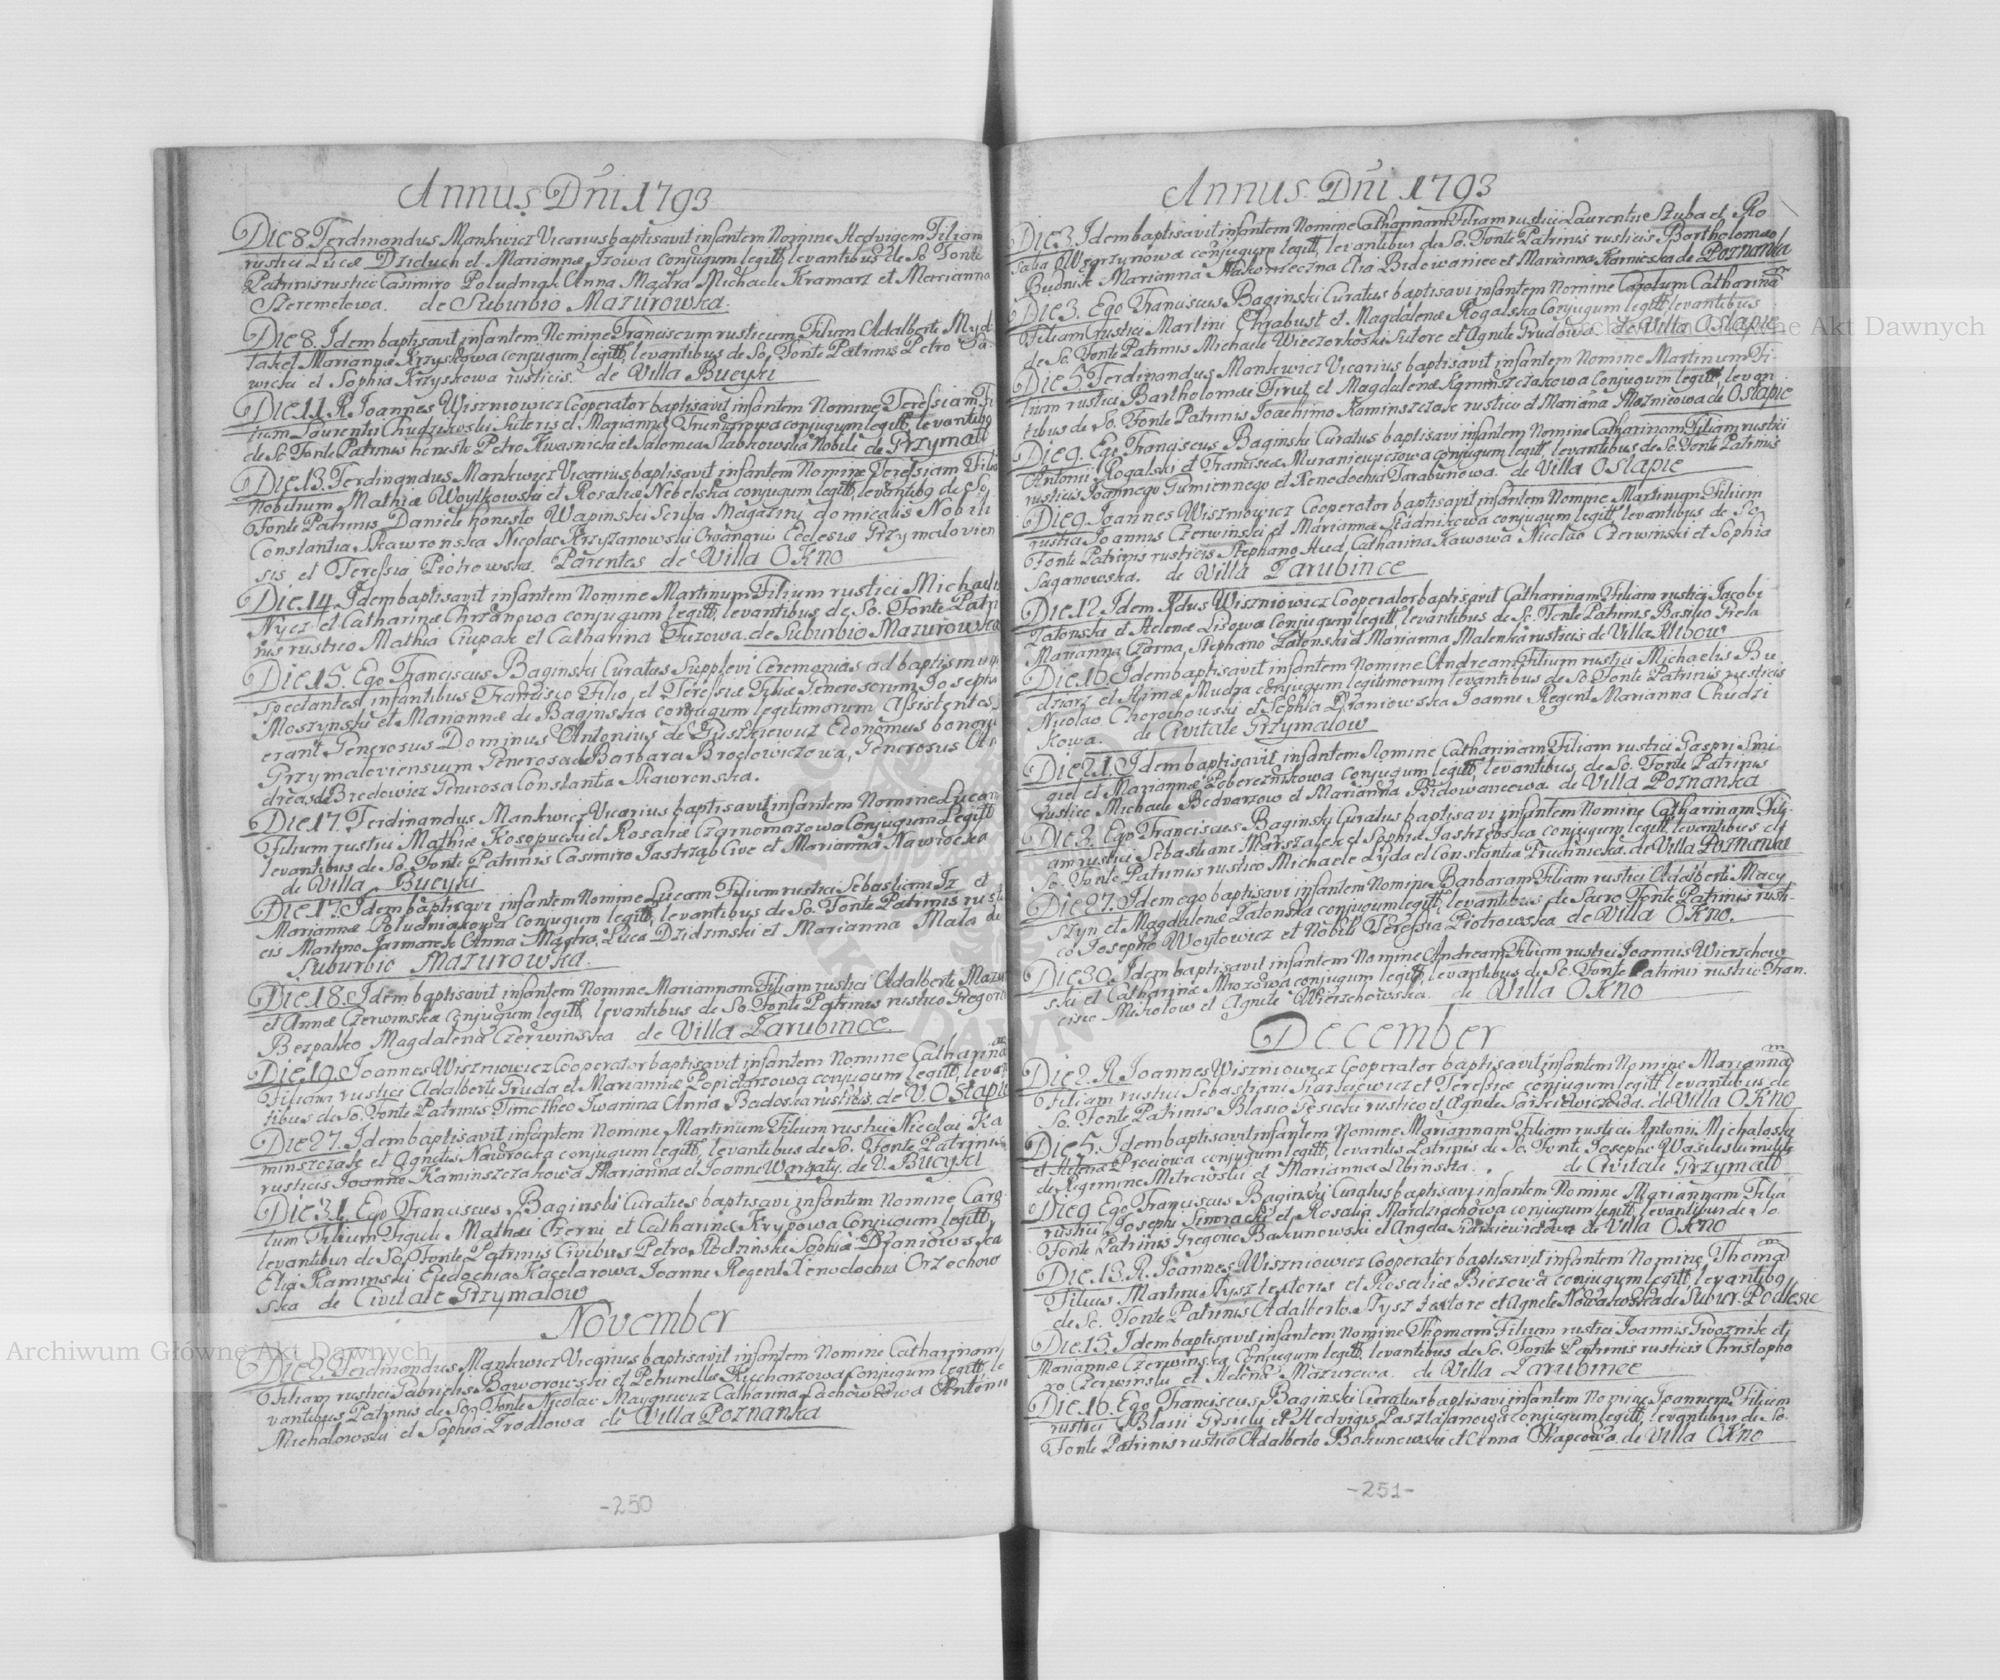 Annus Dñi 1793
Die 8. Ferdinandus Mankwicz Vicarius baptisavit infantem Nomine Hedvigem Filiam
rustici Lucæ Dziduch et Mariannæ Jzowa Conjugum legitt, levantibus de So Fonte
Patrinis rustico Casimiro Poludniak Anna Mądra Michaele Kramarz et Marianna
Szeremetowa. de Suburbio Mazurowka.
Die 8. Idem baptisavit infantem Nomine Franciscum rusticum Filium Adalberti
et Mariannæ Krzyskowa conjugum legitt, levantibus de So, Fonte Patrinis Petro Sa
wicki et Sophia Krzyskowa rusticis. de Villa Bucyki
Die 11. R. Joannes Wiszniowicz Cooperator baptisavit infantem Nomine Teressiam Fi
liam Laurentii Chudzikoski Sutoris et Mariannæ conjugum legitt, levantibg
de So. Fonte Patrinis honesto Petro Kwasnicki et Salomea Slabkowska Nobili de Grzymałł
Die 13. Ferdinandus Mankwicz Vicarius baptisavit infantem Nomine Teressiam Filia
Nobilium Mathiæ Woytkowski et Rosaliæ Nebelska conjugum legitt, levantibg de So,
Fonte Patrinis Daniele honesto Wapinski Scriba Magazini domicalis Nobili
Constantia Skawronska Nicolao Krzyzanowski Organario Eclesiæ Grzymalovien
sis et Teressia Piotrowska. Parentes de Villa Okno
Die 14. Idem baptisavit infantem Nomine Martinum Filium rustici Michaelis
Nycz et Catharinæ Chrzanowa conjugum legitt, levantibus de So. Fonte Patri
nis rustico Mathia Ciupak et Catharina Guzowa. de Suburbio Mazurowka
Die 15. Ego Franciscus Baginski Curatus Supplevi Ceremonias ad baptismum
spectantes infantibus Francisco Filio, et Teressiæ Filiæ Generosorum Josephi
Moszynski et Mariannæ de Baginska conjugum legitimorum Assistentes
erant Generosus Dominus Antonius de Gustkiewicz Economus bonorum
Grzymaloviensium Generosa de Barbara Brodowiczowa, Generosus An
dreas de Bredowicz Generosa Constantia Skawronska.
Die 17. Ferdinandus Mankwicz Vicarius baptisavit infantem Nomine Lucam
Filium rustici Mathiæ Kosopucki et Rosaliæ Czarnomazowa Conjugum Legitt
levantibus de So. Fonte Patrinis Casimiro Jastrząb Cive et Marianna Nawrocka
de Villa Bucyki
Die 17. Idem baptisavi infantem Nomine Lucam Filium rustici Sebastiani Jz et
Mariannæ Poludniakowa conjugum legitt, levantibus de So. Fonte Patrinis rusti
cis Martino Jarmarek Anna Mądra, Luca Dzidzinski et Marianna Mala de
Suburbio Mazurowka.
Die 18. Idem baptisavit infantem Nomine Mariannam Filiam rustici Adalberti Mazur
et Annæ Czerwinska Conjugum legitt, levantibus de So. Fonte Patrinis rustico Gregorio
Bezpalko Magdalena Czerwinska de Villa Zarubince.
Die 19. Joannes Wiszniowicz Cooperator baptisavit infantem Nomine Catharinam
Filiam rustici Adalberti Gruda et Mariannæ Popielarzowa conjugum legitt, levan
tibus de So. Fonte Patrinis Timotheo Jwanina Anna Badoska rusticis. de V. Ostapie
Die 27. Idem baptisavit infantem Nomine Martinum Filium rustici Nicolai Ka
minszczak et Agnetis Nawrocka conjugum legitt, levantibus de So. Fonte Patrinis
rusticis Joanne Kaminszczakowa Marianna et Joanne Wargaty. de V. Bucyki
Die 31. Ego Franciscus Baginski Curatus baptisavi infantem Nomine Caro
lum Filium Figuli Mathæi Czerni et Catharinæ Krypowa Conjugum legitt,
levantibus de So. Fonte Patrinis Civibus Petro Rodzinski Sophia Braniowska
Elia Kaminski Eudochia Kacelarowa Joanne Regent Xenodochia Orzechow
ska de Civitate Grzymalow
November
Die 2. Ferdinandus Mankwicz Vicarius baptisavit infantem Nomine Catharinam
Filiam rustici Gabrielis Baworowski et Petrunella Kucharzowa Conjugum legitt, le
vantibus Patrinis de So. Fonte Nicolao Maygiewicz Catharina Lachowcowa Antonio
Michalowski et Sophia Frodlowa de Villa Poznanka
-250
Annus Dñi 1793
Die 3. Idem baptisavit infantem Nomine Catharinam Filiam rustici Laurentii Szuba et Ro
salia Węgrzynowa conjugum legitt, levantibus de So. Fonte Patrinis rusticis Bartholomæo
Budnik Marianna Makonieczna Elia Bidowaniec et Marianna Karnieska de Poznanka
Die 3. Ego Franciscus Baginski Curatus baptisavi infantem Nomine Carolum Catharinam
Filiam rustici Martini Chrabust et Magdalenæ Rogalska Conjugum legitt, levantibus
de So. Fonte Patrinis Michaele Wieczorkoski Sutore et Agnete Grudowa. de Villa Ostapie
Die 5. Ferdinandus Mankwicz Vicarius baptisavit infantem Nomine Martinum Fi
lium rustici Bartholomæi Firut et Magdalenæ Kaminszczakowa Conjugum legitt, levan
tibus de So. Fonte Patrinis Joachimo Kaminszczak rustico et Mariana Maznicowa de Ostapie
Die 9. Ego Franciscus Baginski Curatus baptisavi infantem Nomine Catharinam Filiam rustici
Antonii Rogalski et Franciscæ Muraniewiczowa conjugum legitt, levantibus de So. Fonte Patrinis
rusticis Joanne Gumiennego et Xenodochia Tarabunowa. de Villa Ostapie
Die 9. Joannes Wiszniowicz Cooperator baptisavit infantem Nomine Martinum Filium
rustici Joannis Czerwinski et Marianna Stadnikowa conjugum legitt, levantibus de So.
Fonte Patrinis rusticis Stephano Hud, Catharina Kawowa Nicolao Czerwinski et Sophia
Saganowska. de Villa Zarubince
Die 12. Idem Rdus Wiszniowicz Cooperator baptisavit Catharinam Filiam rustici Jacobi
Zatonska et Helenæ Lisowa Conjugum legitt, levantibus de So. Fonte Patrinis Basilio Grela
Marianna Czarna, Stephano Zatonski et Marianna Malenka rusticis de Villa Albow
Die 16. Idem baptisavit infantem Nomine Andream Filium rustici Michaelis Bu
dziarz et Annæ Mudra conjugum legitimorum levantibus de So. Fonte Patrinis rusticis
Nicolao Chorochowski et Sophia Braniowska Joanne Regent Marianna Chudzi
kowa. de Civitate Grzymalow
Die 21. Idem baptisavit infantem Nomine Catharinam Filiam rustici Gaspri Smi
giel et Mariannæ Poberezníkowa Conjugum legitt, levantibus de So. Fonte Patrinis
rustico Michaele Bednarzow et Marianna Bidowaniecowa. de Villa Poznanka
Die 3. Ego Franciscus Baginski Curatus baptisavi infantem Nomine Catharinam Fili
am rustici Sebastiani Marszalek et Sophia Jastrzębska conjugum legitt, levantibus de
So. Fonte Patrinis rustico Michaele Lyda et Constantia Prudnicka. de Villa Poznanka
Die 27. Idem ego baptisavi infantem Nomine Barbaram Filiam rustici Adalberti Macy
szyn et Magdalenæ Zatonska conjugum legitt, levantibus de Sacro Fonte Patrinis rusti-
co Josepho Woytowicz et Nobili Teressia Piotrowska de Villa Okno.
Die 30. Idem baptisavit infantem Nomine Andream Filium rustici Joannis Wierzchow
ski et Catharinæ Mrozowa conjugum legitt, levantibus de So. Fonte Patrinis rustico Fran-
cisco Mikolow et Agnete Wierzchowska. de Villa Okno
December
Die 2. R. Joannes Wiszniowicz Cooperator baptisavit infantem Nomine Mariannam
Filiam rustici Sebastiani Siarkiewicz et Teressiæ conjugum legitt, levantibus de
So. Fonte Patrinis Blasio Gęsicki rustico et Agnete Sarkiewiczowa. de Villa Okno
Die 5. Idem baptisavit infantem Nomine Mariannam Filiam rustici Antonii Michaloski
et Helenæ Prociowa conjugum legitt, levantis Patrinis de So. Fonte Josepho Wasileski milite
de Regimine Mitrowski et Marianna Libinska. de Civitate Grzymałł
Die 9 Ego Franciscus Baginski Curatus baptisavi infantem Nomine Mariannam Filia
rustici Josephi Simoracki et Rosalia Mardziachowa conjugum legitt, levantibus de So.
Fonte Patrinis Gregorio Bakunowski et Angela Siarkiewiczowa de Villa Okno
Die 13. R. Joannes Wiszniowicz Cooperator baptisavit infantem Nomine Thomam
Filius Martini Stysz textoris et Rosaliæ Biczowa conjugum legitt, levantibg
de So. Fonte Patrinis Adalberto Stysz textore et Agnete Nowakowska de Subur. Podlesie
Die 15. Idem baptisavit infantem Nomine Thomam Filium rustici Joannis Gwoznik et
Mariannæ Czerwinska Conjugum legitt, levantibus de So. Fonte Patrinis rusticis Christopho
ro Czerwinski et Helena Mazurowa. de Villa Zarubince
Die 16. Ego Franciscus Baginski Curatus baptisavi infantem Nomine Joannem Filium
rustici Blasii Gęsicki et Hedvigis Paszlajanowa conjugum legitt, levantibus de So.
Fonte Patrinis rustico Adalberto Bakunowski et Anna Okapcowa. de Villa Okno
-251-
Archiwum Główne Akt Dawnych